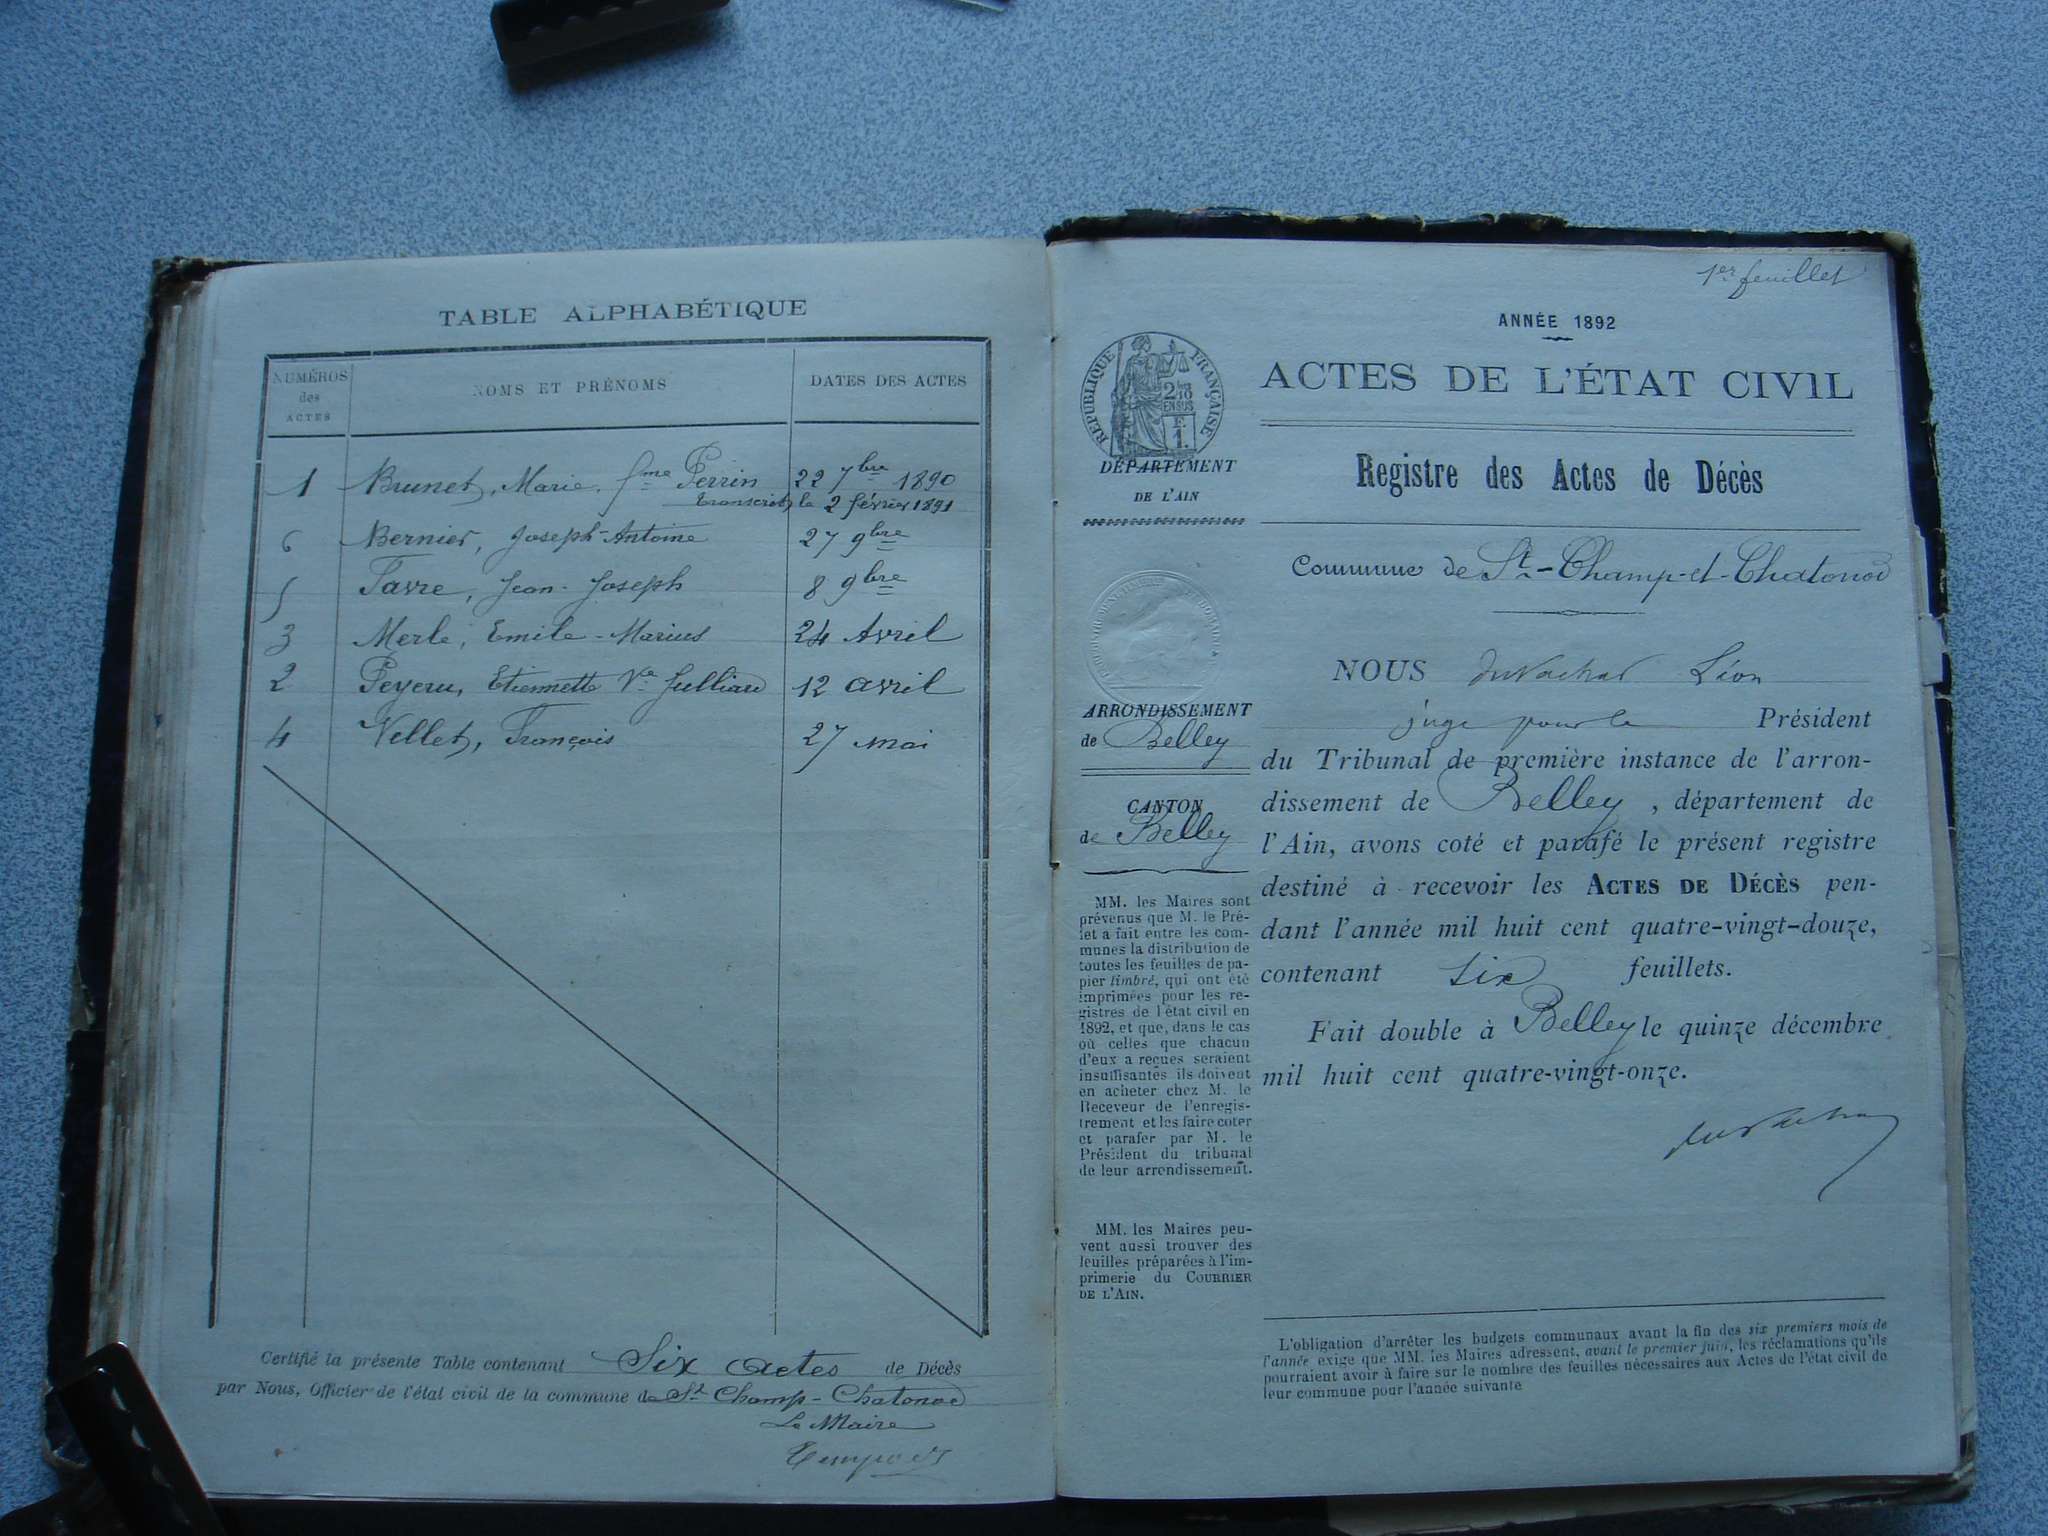 TABLE ALPHABÉTIQUE
NUMÉROS
des
ACTES
NOMS ET PRÉNOMS
DATES DES ACTES
1 Brunet, Marie, fme Perrin 22 7bre 1890
transcrit le 2 février 1891
6 Bernier, Joseph-Antoine 27 9bre
5 Favre, Jean-Joseph 8 9bre
3 Merle, Emile-Marius 24 Avril
2 Etiennette Ve Julliard 12 avril
4 Vellet, François 27 mai
Certifié la présente Table contenant Six actes de Décès
par Nous, Officier de l'état civil de la commune de St Champ-Chatonod
Le Maire
1er feuillet
ANNÉE 1892
ACTES DE L'ÉTAT CIVIL
Registre des Actes de Décès
RÉPUBLIQUE FRANÇAISE
DÉPARTEMENT
DE L'AIN
Commune de St-Champ-et-Chatonod
NOUS Léon
juge pour le Président
du Tribunal de première instance de l'arron-
dissement de Belley, département de
l'Ain, avons coté et parafé le présent registre
destiné à recevoir les ACTES DE DÉCÈS pen-
dant l'année mil huit cent quatre-vingt-douze,
contenant six feuillets.
Fait double à Belley le quinze décembre
mil huit cent quatre-vingt-onze.
ARRONDISSEMENT
de Belley
CANTON
de Belley
MM. les Maires sont
prévenus que M. le Pré-
fet a fait entre les com-
munes la distribution de
toutes les feuilles de pa-
pier timbré, qui ont été
imprimées pour les re-
gistres de l'état civil en
1892, et que, dans le cas
où celles que chacun
d'eux a reçues seraient
insuffisantes ils doivent
en acheter chez M. le
Receveur de l'enregis-
trement et les faire coter
et parafer par M. le
Président du tribunal
de leur arrondissement.
MM. les Maires peu-
vent aussi trouver des
feuilles préparées à l'im-
primerie du COURRIER
DE L'AIN.
L'obligation d'arrêter les budgets communaux avant la fin des six premiers mois de
l'année exige que MM. les Maires adressent, avant le premier juin, les réclamations qu'ils
pourraient avoir à faire sur le nombre des feuilles nécessaires aux Actes de l'état civil de
leur commune pour l'année suivante